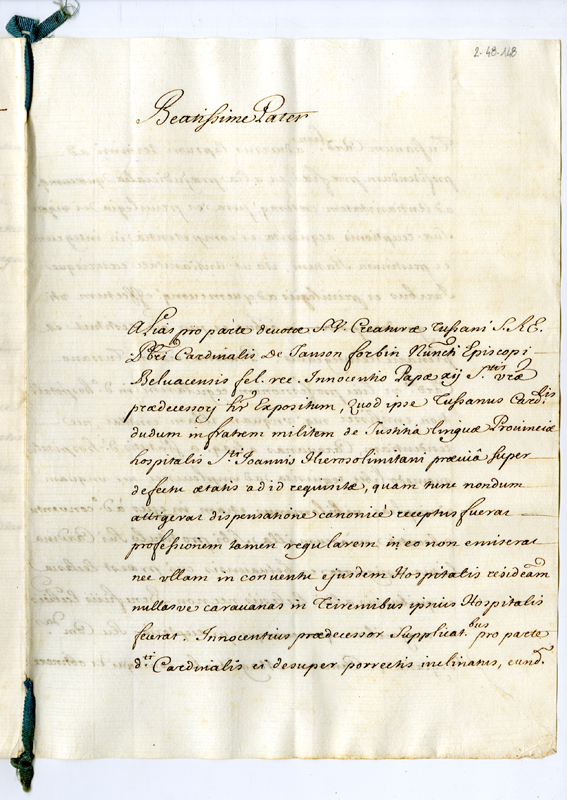 2-48-148
Beatissime Pater
Alias pro parte devotæ S.V. Creaturæ Tussani S.R.E.
Pbri Cardinalis De Janson forbin Nuncti Episcopi
Beluacensis fel. rec. Innocentio Papæ xij Stis vræ
prædecessorj Expositum, Quod ipse Tussanus Cardlis
dudum in fratrem militem de Justitia linguæ Provinciæ
hospitalis Sti Joannis Hierosolimitani præviâ super
defectu ætatis ad id requisitæ, quam tunc nondum
attigerat dispensatione canonicè receptus fuerat
professionem tamen regularem in eo non emiserat
nec vllam in conventu ejusdem Hospitalis residẽam
nullasve caravanas in Triremibus ipsius Hospitalis
fecerat. Innocentius prædecessor Supplicat.bus pro parte
d.ti Cardinalis ei desuper porrectis inclinatus, eund.